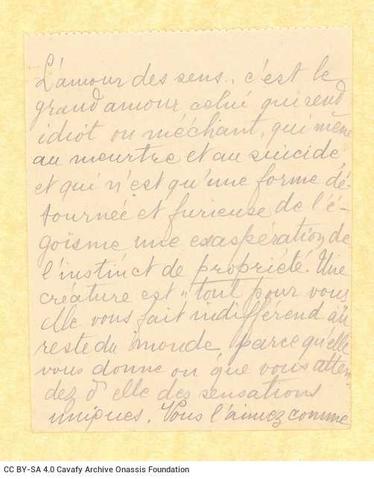 L'amour des sens, c'est le
grand amour celui qui rend
idiot ou méchant, qui mène
au meurtre et au suicide
et qui n'est qu'une forme dé-
tournée et furieuse de l'é-
goïsme une exaspération de
l'instinct de propriété. Une
créature est "tout pour vous
elle vous fait indifférend au
reste du monde parce qu'elle
vous donne ou que vous atten-
dez d'elle des sensations
uniques. Vous l'aimez comme
CC BY-SA 4.0 Cavafy Archive Onassis Foundation